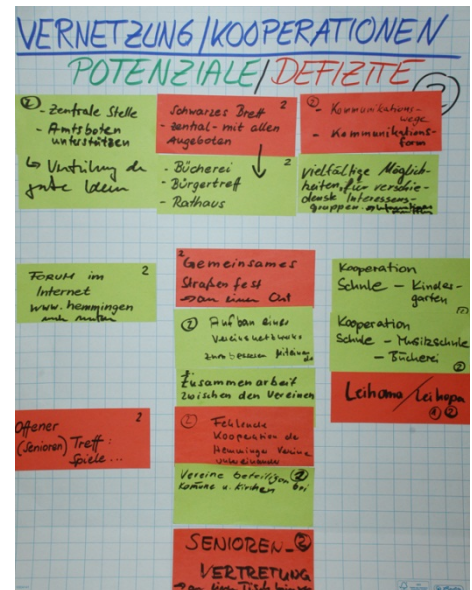 VERNETZUNG/KOOPERATIONEN
POTENZIALE/DEFIZITE
2
2
- Zentrale Stelle
- Amtsboten
unterstützen
↳ Verteilung der
gute Ideen
Schwarzes Brett 2
- zentral - mit allen
Angeboten
- Bücherei 2
- Bürgertreff
- Rathaus
2
- Kommunikations-
wege
- Kommunikations-
form
vielfältige Möglich-
keiten, für verschie-
denste Interessens-
gruppen
Forum im 2
Internet
www.hemmingen
2
Gemeinsames
Straßenfest
an einem Ort
2 Aufbau eines
Vereinsnetzwerks
zum besseren
2
Zusammenarbeit
zwischen den Vereinen
2 Fehlende
Kooperation der
Hemminger Vereine
untereinander
Vereine beteiligen 2
Komune u. Kirchen bei
SENIOREN- 2
VERTRETUNG
an einen Tisch
Kooperation
Schule - Kinder-
garten
Kooperation
Schule - Musikschule
- Bücherei 2
Leihoma/Leihopa
1 2
Offener 2
(Senioren) Treff:
Spiele...